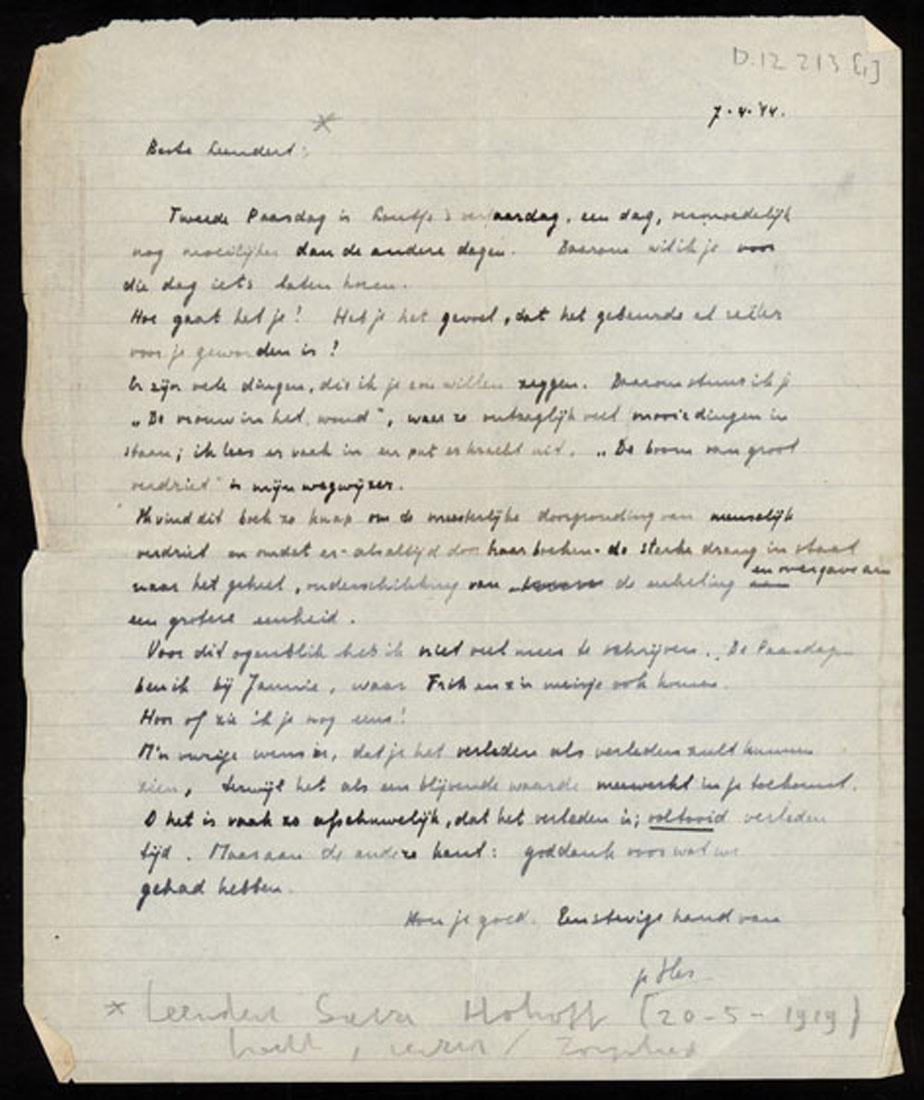 D.12 213 [1]
7-4-'44.
*
Beste Leendert:
Tweede Paasdag is Loutje's verjaardag, een dag, vermoedelijk
nog moeilijker dan de andere dagen. Daarom wil ik je voor
die dag iets laten horen.
Hoe gaat het je? Heb je het gevoel, dat het gebeurde al reëler
voor je geworden is?
Er zijn vele dingen, die ik je zou willen zeggen. Daarom stuur ik je
„De vrouw in het woud", waar zo ontzaglijk veel mooie dingen in
staan; ik lees er vaak in en put er kracht uit. „De boom van groot
verdriet" is mijn wegwijzer.
Ik vind dit boek zo knap om de meesterlijke doorgronding van menselijk
verdriet en omdat er - als altijd door haar boeken - de sterke drang in staat
naar het geheel, onderschikking van de enkeling aan en overgave aan
een grotere eenheid.
Voor dit ogenblik heb ik niet veel meer te schrijven. De Paasdagen
ben ik bij Jannie, waar Frik en z'n meisje ook komen.
Hoor of zie ik je nog eens?
M'n vurige wens is, dat je het verleden als verleden zult kunnen
zien, terwijl het als een blijvende waarde meewerkt in je toekomst.
O het is vaak zo afschuwelijk, dat het verleden is; voltooid verleden
tijd. Maar aan de andere kant: goddank voor wat we
gehad hebben.
Hou je goed. Een stevige hand van
je
* Leendert Hohoff (20-5-1919)